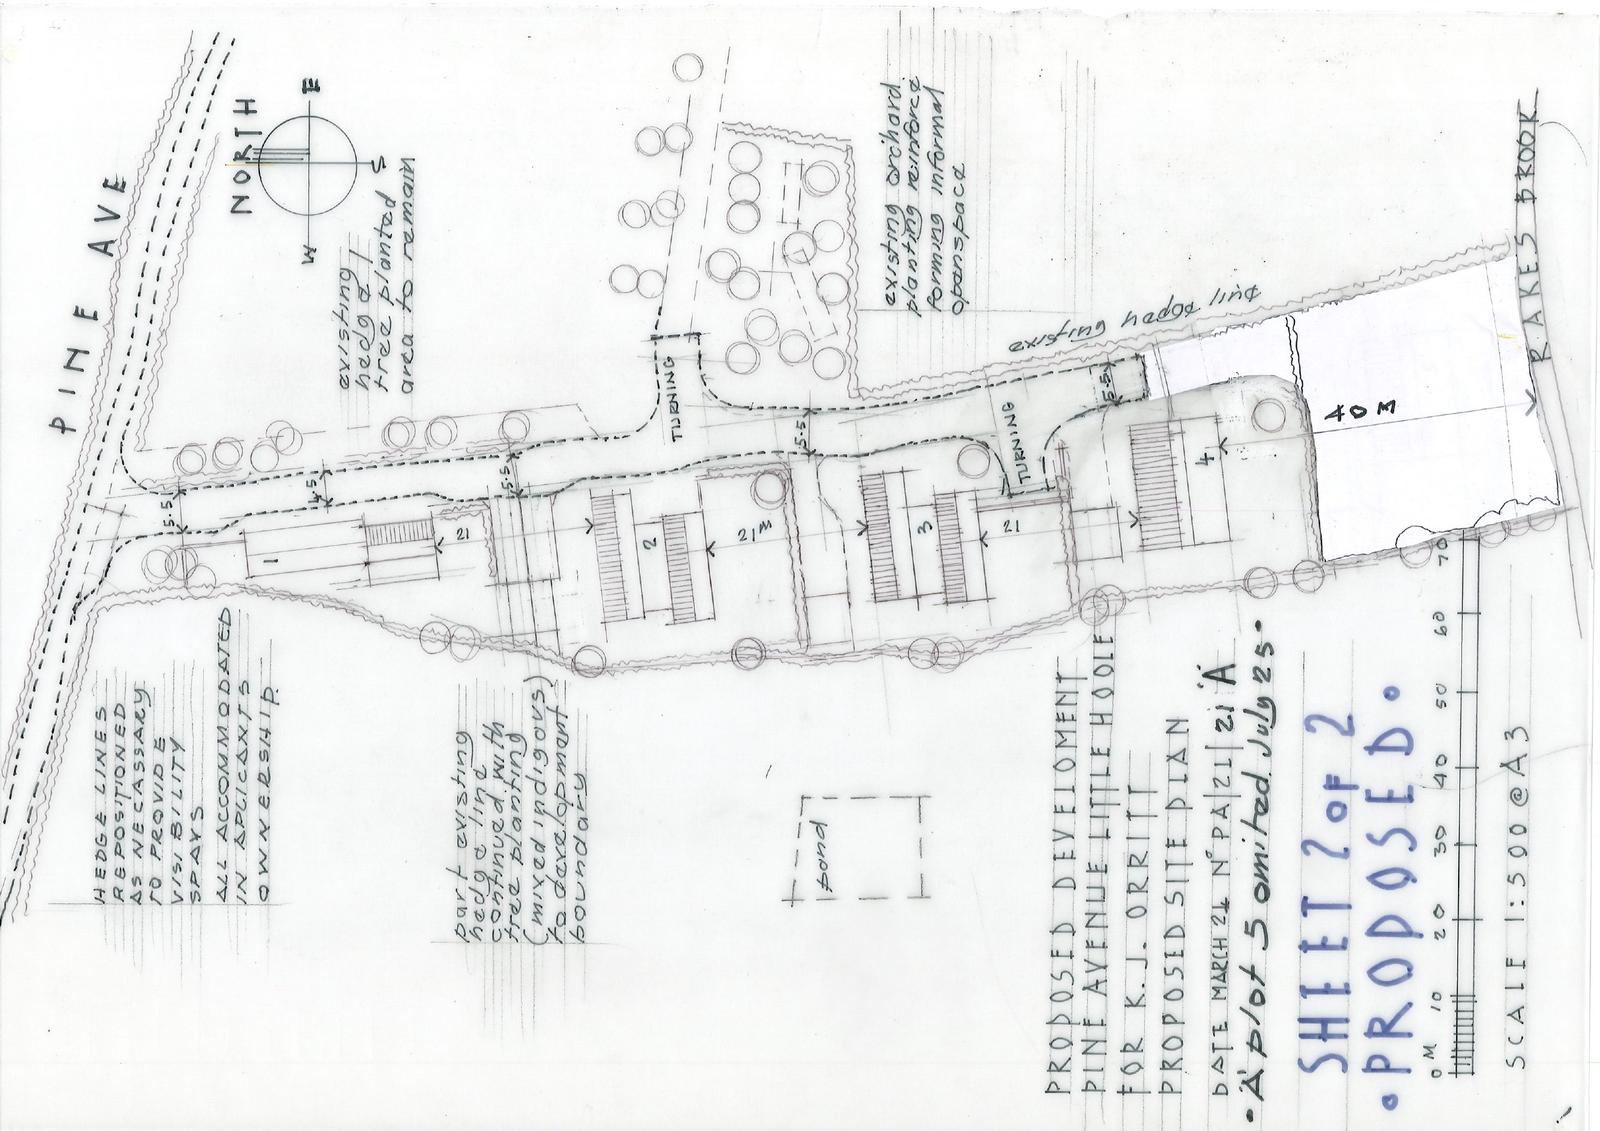 PINE AVE
NORTH
E
S
W
existing
hedge /
tree planted
area to remain
existing orchard
planting reinforce
forming informal
openspace
existing hedge line
RAKES BROOK
TURNING
TURNING
5.5
4.5
5.5
5.5
5.5
40 M
1
21
2
21M
3
21
4
HEDGE LINES
REPOSITIONED
AS NECASSARY
TO PROVIDE
VISIBILITY
SPAYS
ALL ACCOMMODATED
IN APPLICANTS
OWNERSHIP.
part existing
hedge line
continued with
tree planting
(mixed indigous)
to development
boundary
pond
PROPOSED DEVELOMENT
PINE AVENUE LITTLE HOOLE
FOR K.J. ORRITT
PROPOSED SITE PLAN
DATE MARCH 24 Nº PA|21|21 'A'
•'A' plot 5 omited July 25•
SHEET 2 OF 2
•PROPOSED•
0 M 10 20 30 40 50 60 70
SCALE 1:500@A3